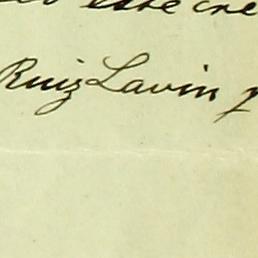 este cre
Ruiz Lavin y